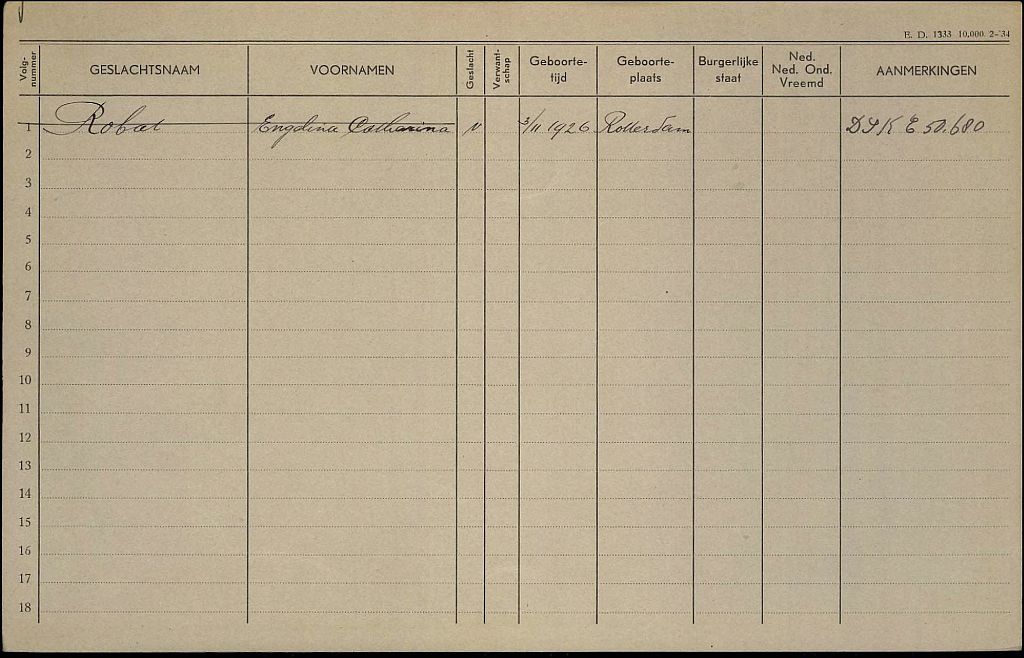 E. D. 1333 10,000. 2-'34
Volg-
nummer
GESLACHTSNAAM
VOORNAMEN
Geslacht
Verwant-
schap
Geboorte-
tijd
Geboorte-
plaats
Burgerlijke
staat
Ned.
Ned. Ond.
Vreemd
AANMERKINGEN
1 Robat Engelina Catharina V 3/11 1926 Rotterdam E 50.680
2
3
4
5
6
7
8
9
10
11
12
13
14
15
16
17
18